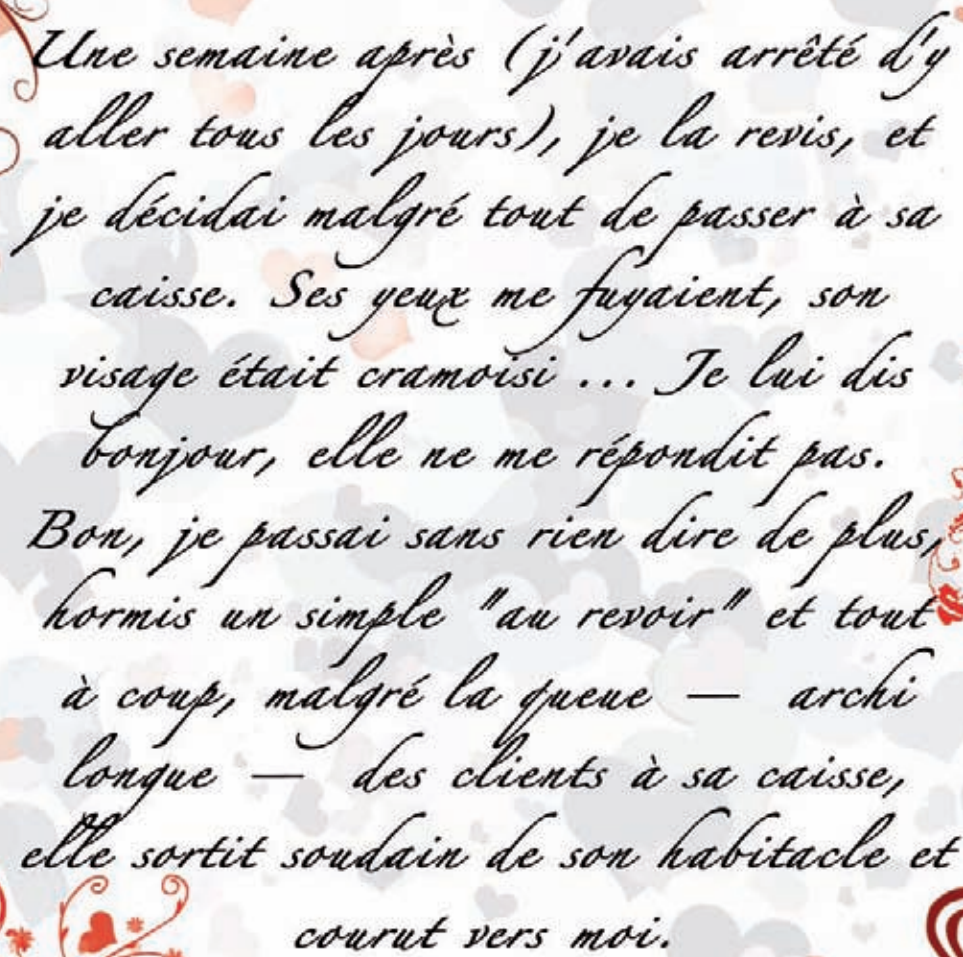 Une semaine après (j'avais arrêté d'y
aller tous les jours), je la revis, et
je décidai malgré tout de passer à sa
caisse. Ses yeux me fuyaient, son
visage était cramoisi ... Je lui dis
bonjour, elle ne me répondit pas.
Bon, je passai sans rien dire de plus,
hormis un simple "au revoir" et tout
à coup, malgré la queue — archi
longue — des clients à sa caisse,
elle sortit soudain de son habitacle et
courut vers moi.